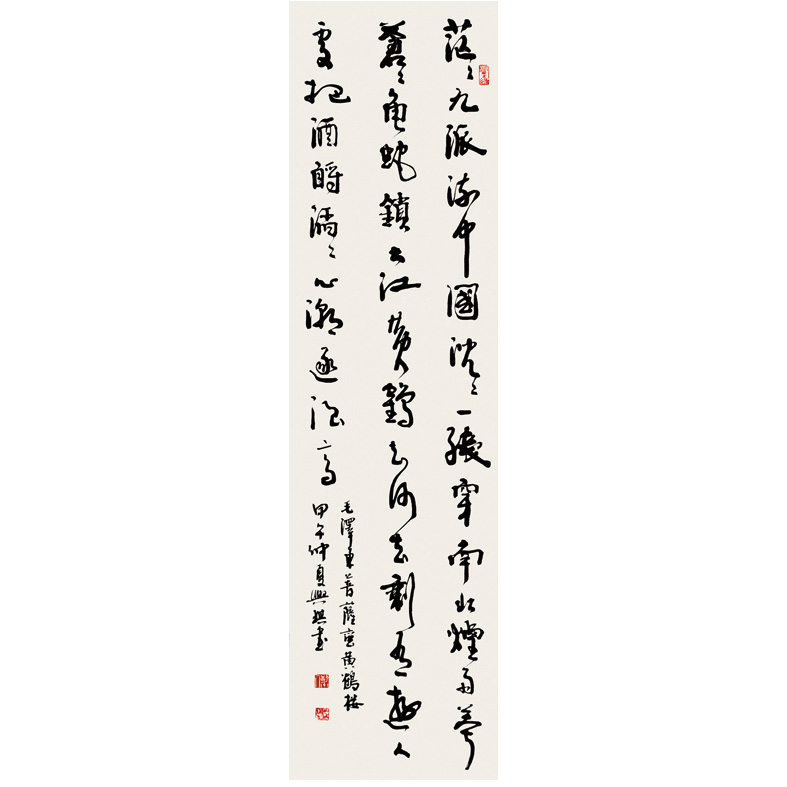 茫々九派流中國沉々一線穿南北煙雨莽
蒼々龜蛇鎖大江黃鶴知何去剩有遊人
處把酒酹滔々心潮逐浪高
毛澤東菩薩蠻黄鶴楼
甲午仲夏興書